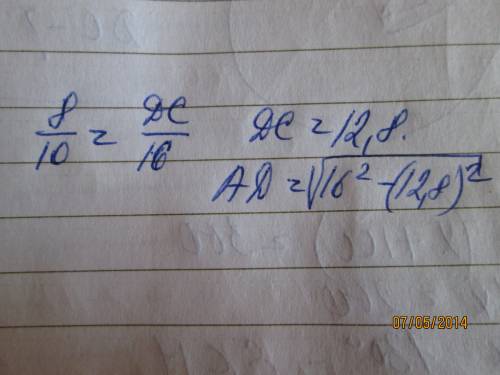 8/10 = DC/16 DC = 12,8.
AD = √16² - (12,8)²
07/05/2014